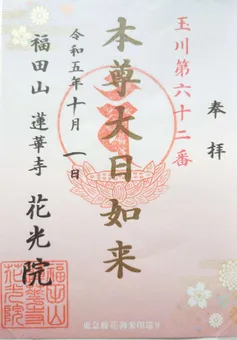 奉拝
玉川第六十二番
本尊大日如来
令和五年十月一日
福田山 蓮華寺 花光院
東急線花御朱印巡り
福田山
蓮華寺
花光院